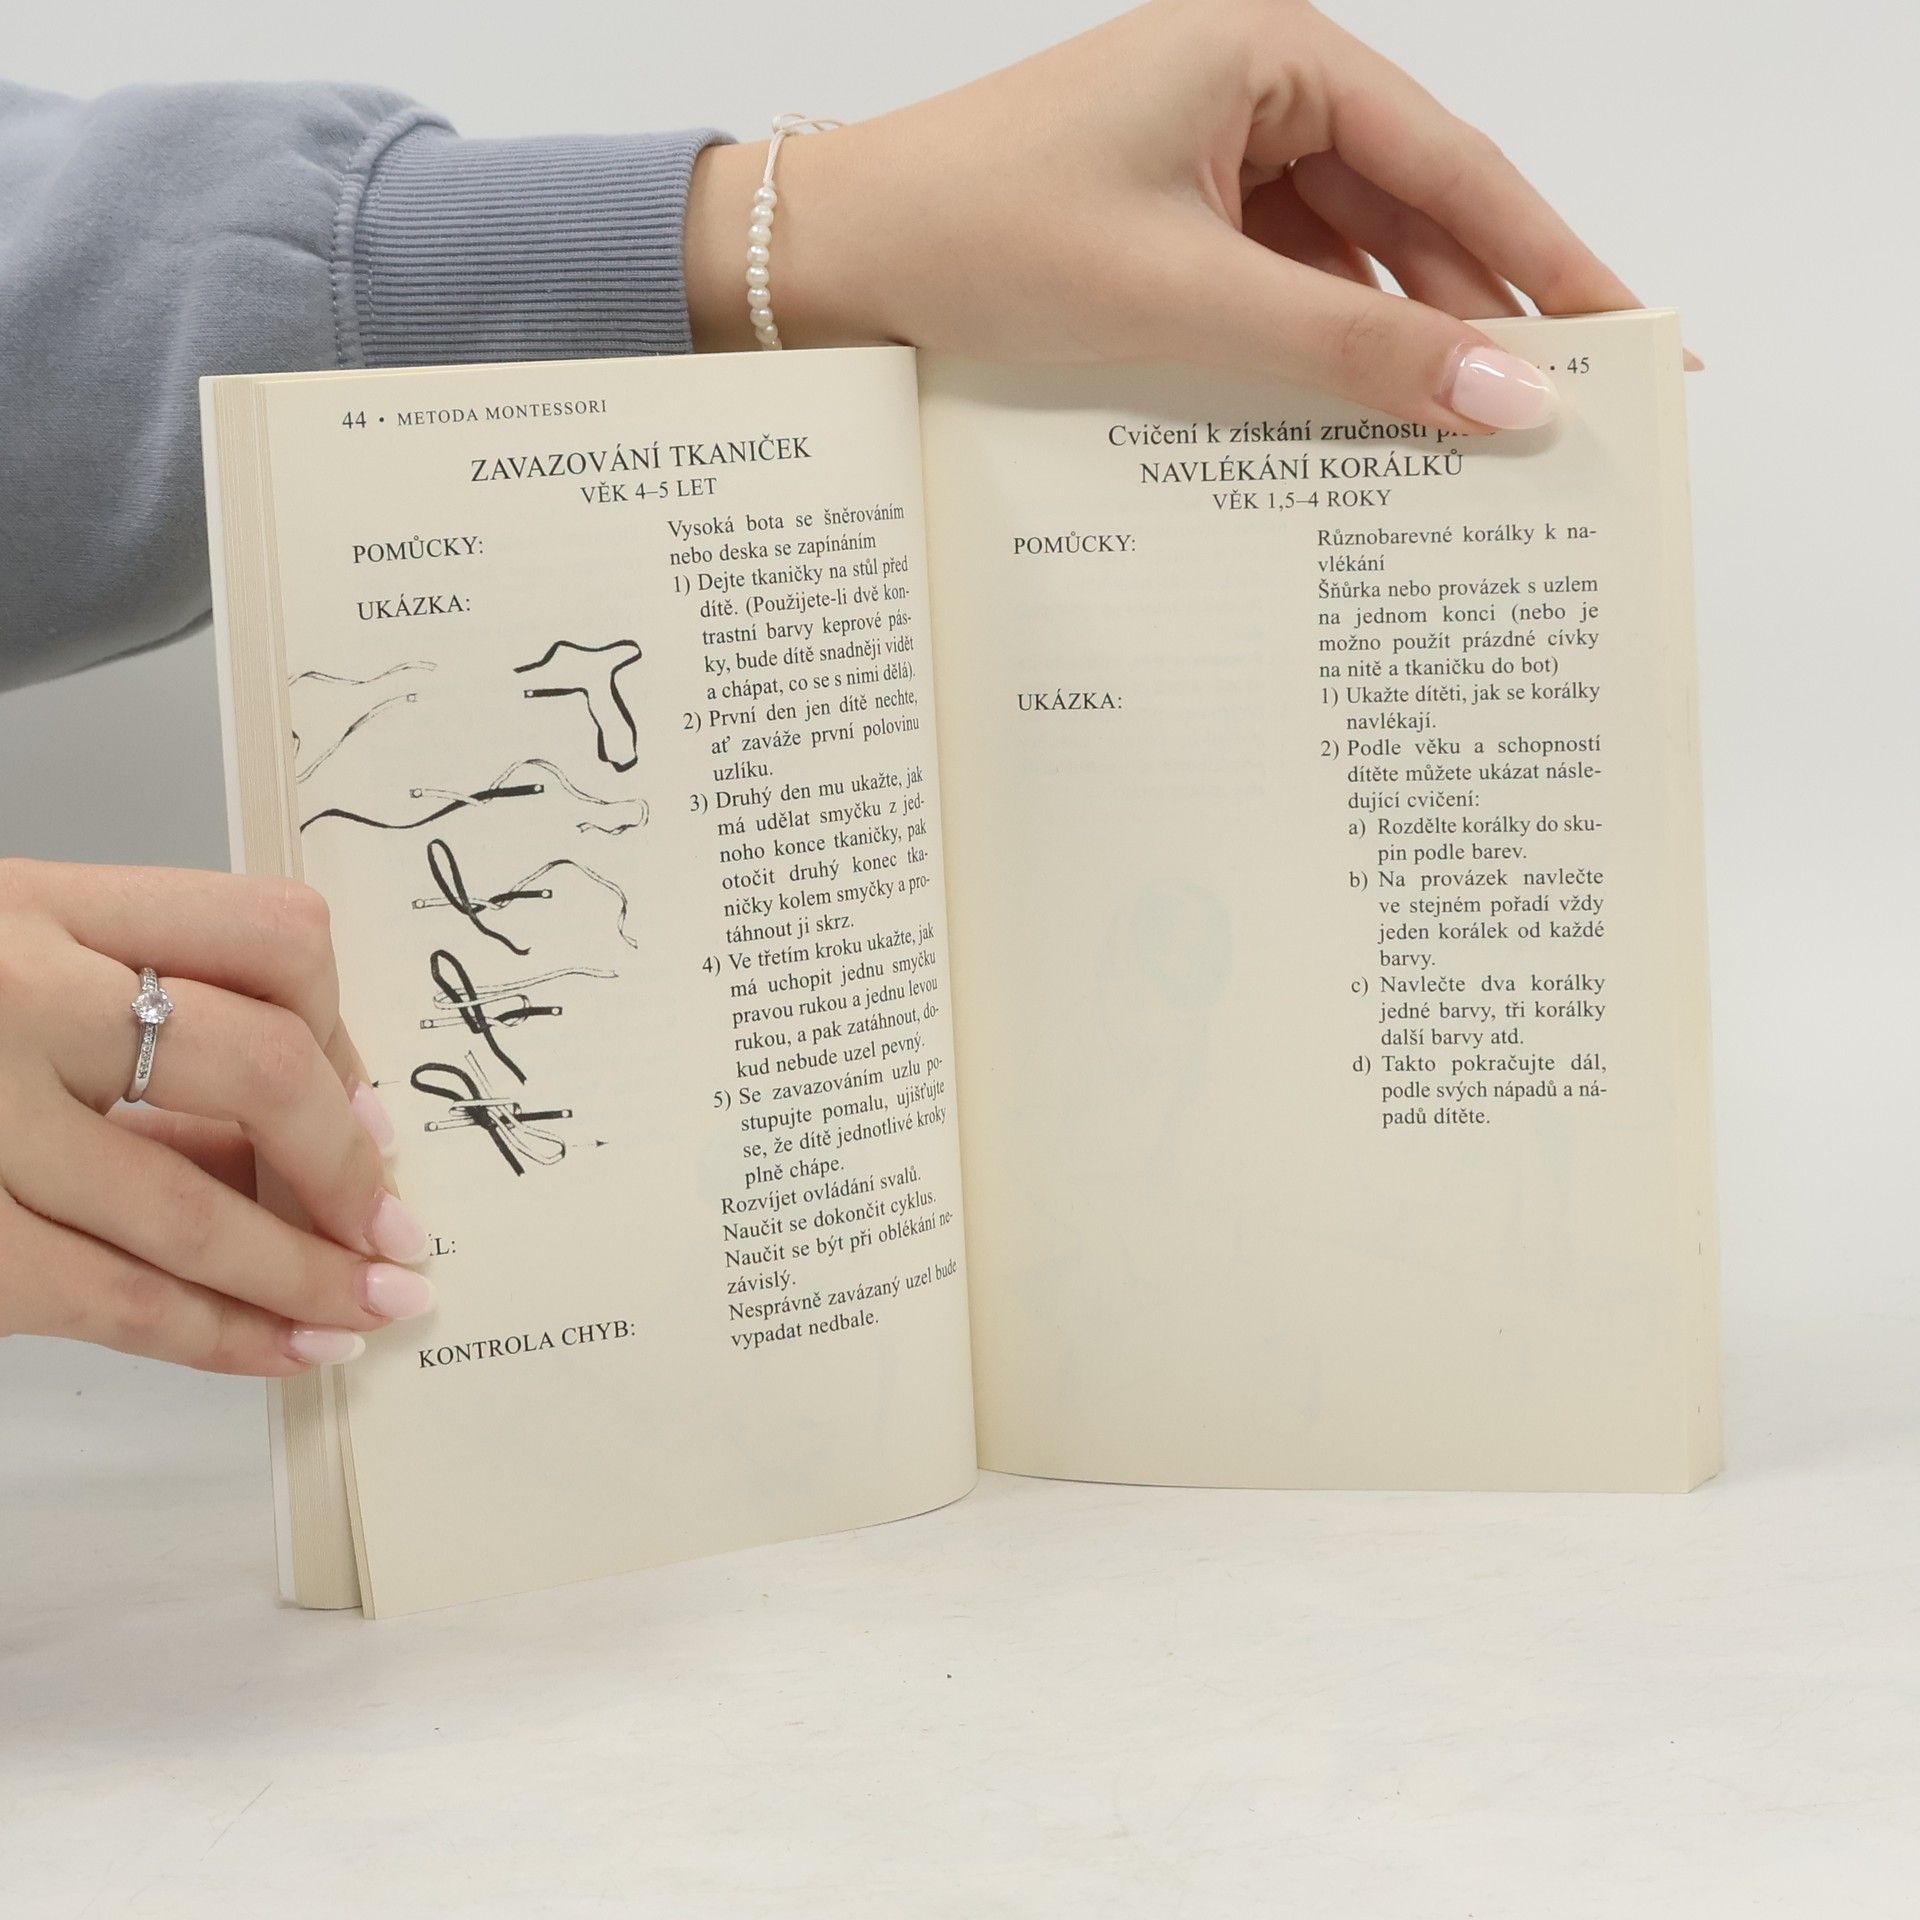 44 • METODA MONTESSORI
ZAVAZOVÁNÍ TKANIČEK
VĚK 4–5 LET
POMŮCKY:
Vysoká bota se šněrováním
nebo deska se zapínáním
UKÁZKA:
1) Dejte tkaničky na stůl před
dítě. (Použijete-li dvě kon-
trastní barvy keprové pás-
ky, bude dítě snadněji vidět
a chápat, co se s nimi dělá).
2) První den jen dítě nechte,
ať zaváže první polovinu
uzlíku.
3) Druhý den mu ukažte, jak
má udělat smyčku z jed-
noho konce tkaničky, pak
otočit druhý konec tka-
ničky kolem smyčky a pro-
táhnout ji skrz.
4) Ve třetím kroku ukažte, jak
má uchopit jednu smyčku
pravou rukou a jednu levou
rukou, a pak zatáhnout, do-
kud nebude uzel pevný.
5) Se zavazováním uzlu po-
stupujte pomalu, ujišťujte
se, že dítě jednotlivé kroky
plně chápe.
ÍL:
Rozvíjet ovládání svalů.
Naučit se dokončit cyklus.
Naučit se být při oblékání ne-
závislý.
KONTROLA CHYB:
Nesprávně zavázaný uzel bude
vypadat nedbale.
• 45
Cvičení k získání zručnosti
NAVLÉKÁNÍ KORÁLKŮ
VĚK 1,5–4 ROKY
POMŮCKY:
Různobarevné korálky k na-
vlékání
Šňůrka nebo provázek s uzlem
na jednom konci (nebo je
možno použít prázdné cívky
na nitě a tkaničku do bot)
UKÁZKA:
1) Ukažte dítěti, jak se korálky
navlékají.
2) Podle věku a schopností
dítěte můžete ukázat násle-
dující cvičení:
a) Rozdělte korálky do sku-
pin podle barev.
b) Na provázek navlečte
ve stejném pořadí vždy
jeden korálek od každé
barvy.
c) Navlečte dva korálky
jedné barvy, tři korálky
další barvy atd.
d) Takto pokračujte dál,
podle svých nápadů a ná-
padů dítěte.